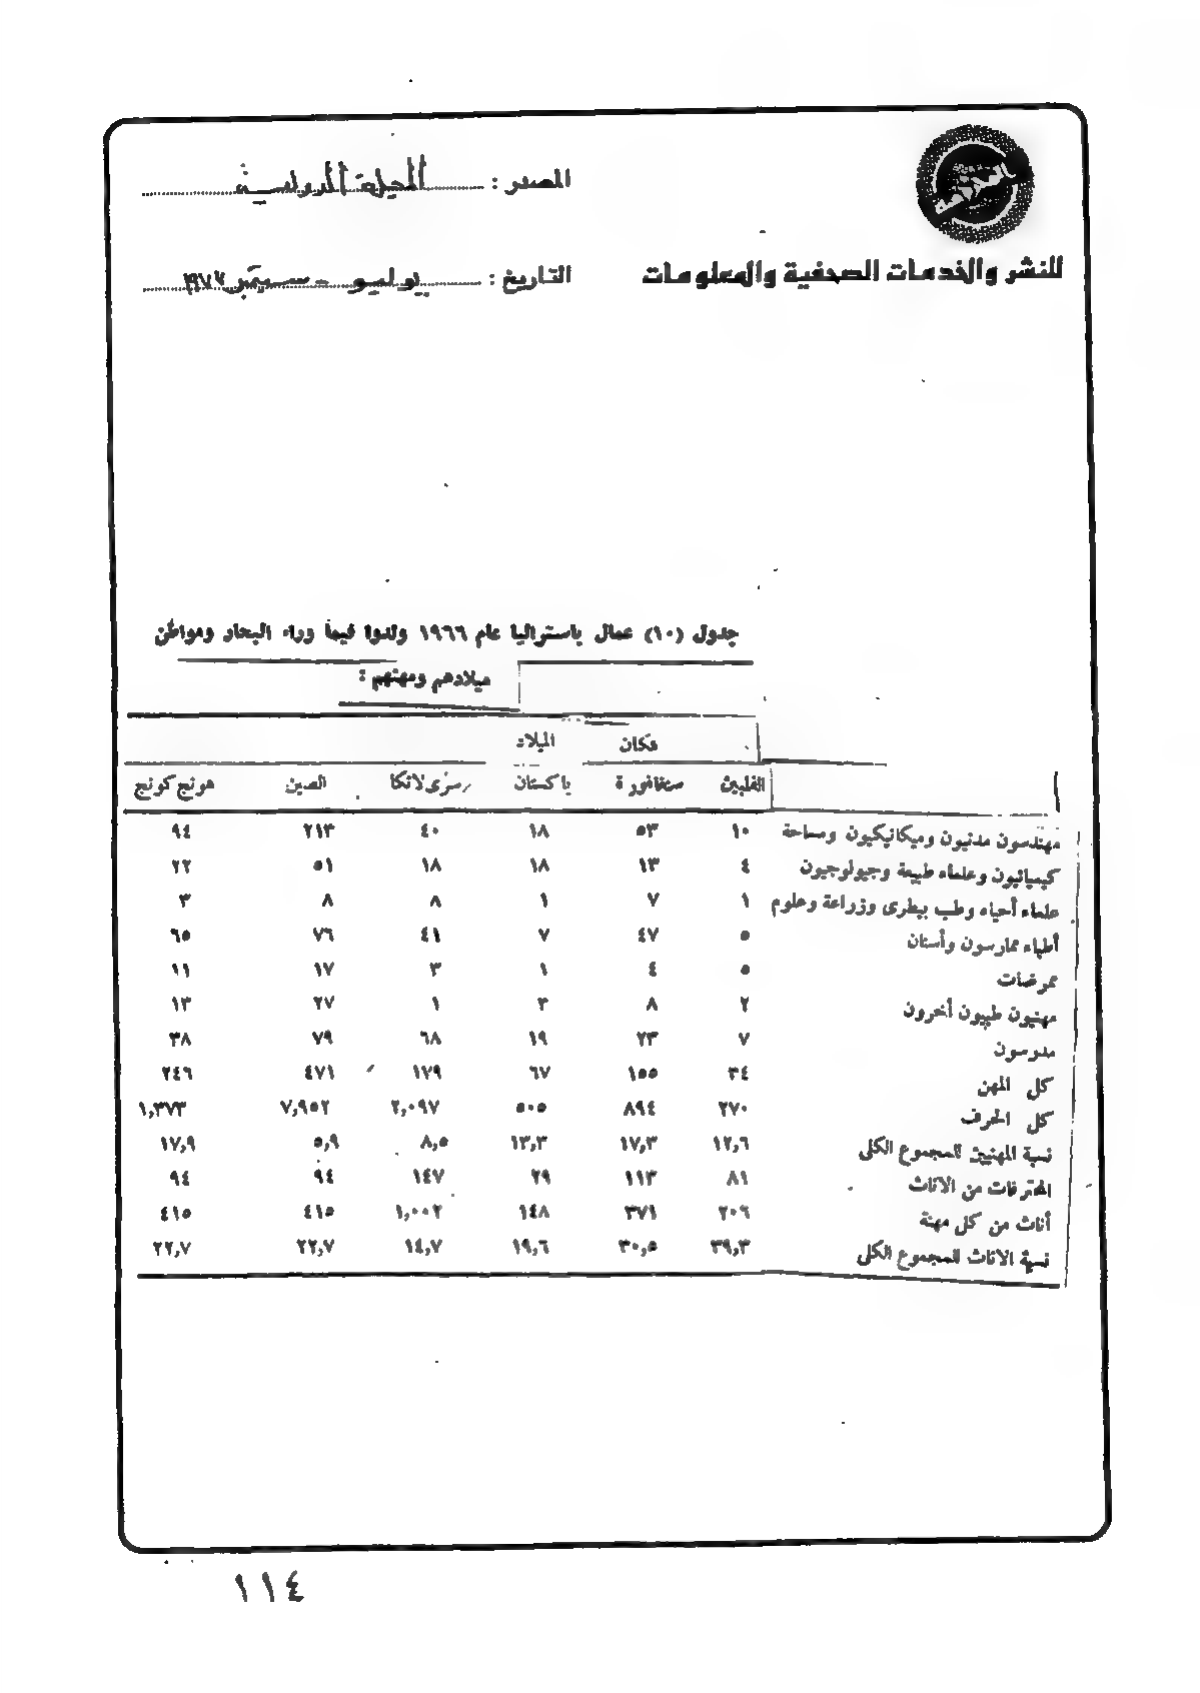 المصدر : المجلة الدولية
للنشر والخدمات الصحفية والمعلومات
التاريخ : يوليو - سبتمبر ١٩٧٧
جدول (١٠) عمال باستراليا عام ١٩٦٦ ولدوا فيما وراء البحار ومواطن
ميلادهم ومهنهم :
مكان الميلاد
الفلبين سنغافورة باكستان سرى لانكا الصين هونج كونج
مهندسون مدنيون وميكانيكيون ومساحة ١٠ ٥٣ ١٨ ٤٠ ٢١٣ ٩٤
كيميائيون وعلماء طبيعة وجيولوجيون ٤ ١٣ ١٨ ١٨ ٥١ ٢٢
علماء أحياء وطب بيطرى وزراعة وعلوم ١ ٧ ١ ٨ ٨ ٣
أطباء ممارسون وأسنان ٥ ٤٧ ٧ ٤١ ٧٦ ٦٥
ممرضات ٥ ٤ ١ ٣ ١٧ ١١
مهنيون طبيون أخرون ٢ ٨ ٣ ١ ٢٧ ١٣
مدرسون ٧ ٢٣ ١٩ ٦٨ ٧٩ ٣٨
كل المهن ٣٤ ١٥٥ ٦٧ ١٧٩ ٤٧١ ٢٤٦
كل الحرف ٢٧٠ ٨٩٤ ٥٠٥ ٢,٠٩٧ ٧,٩٥٢ ١,٣٧٣
نسبة المهنيين للمجموع الكلى ١٢,٦ ١٧,٣ ١٣,٣ ٨,٥ ٥,٩ ١٧,٩
المحترفات من الاناث ٨١ ١١٣ ٢٩ ١٤٧ ٩٤ ٩٤
أناث من كل مهنة ٢٠٦ ٣٧١ ١٤٨ ١,٠٠٢ ٤١٥ ٤١٥
نسبة الاناث للمجموع الكلى ٣٩,٣ ٣٠,٥ ١٩,٦ ١٤,٧ ٢٢,٧ ٢٢,٧
١١٤